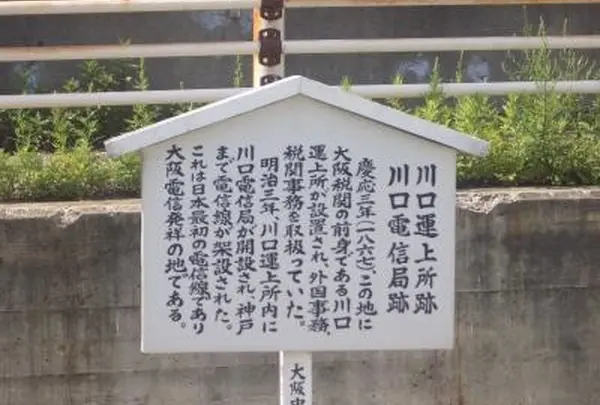 川口運上所跡
川口電信局跡
慶応三年(一八六七)、この地に
大阪税関の前身である川口
運上所が設置され、外国事務、
税関事務を取扱っていた。
明治三年、川口運上所内に
川口電信局が開設され、神戸
まで電信線が架設された。
これは日本最初の電信線であり
大阪電信発祥の地である。
大阪